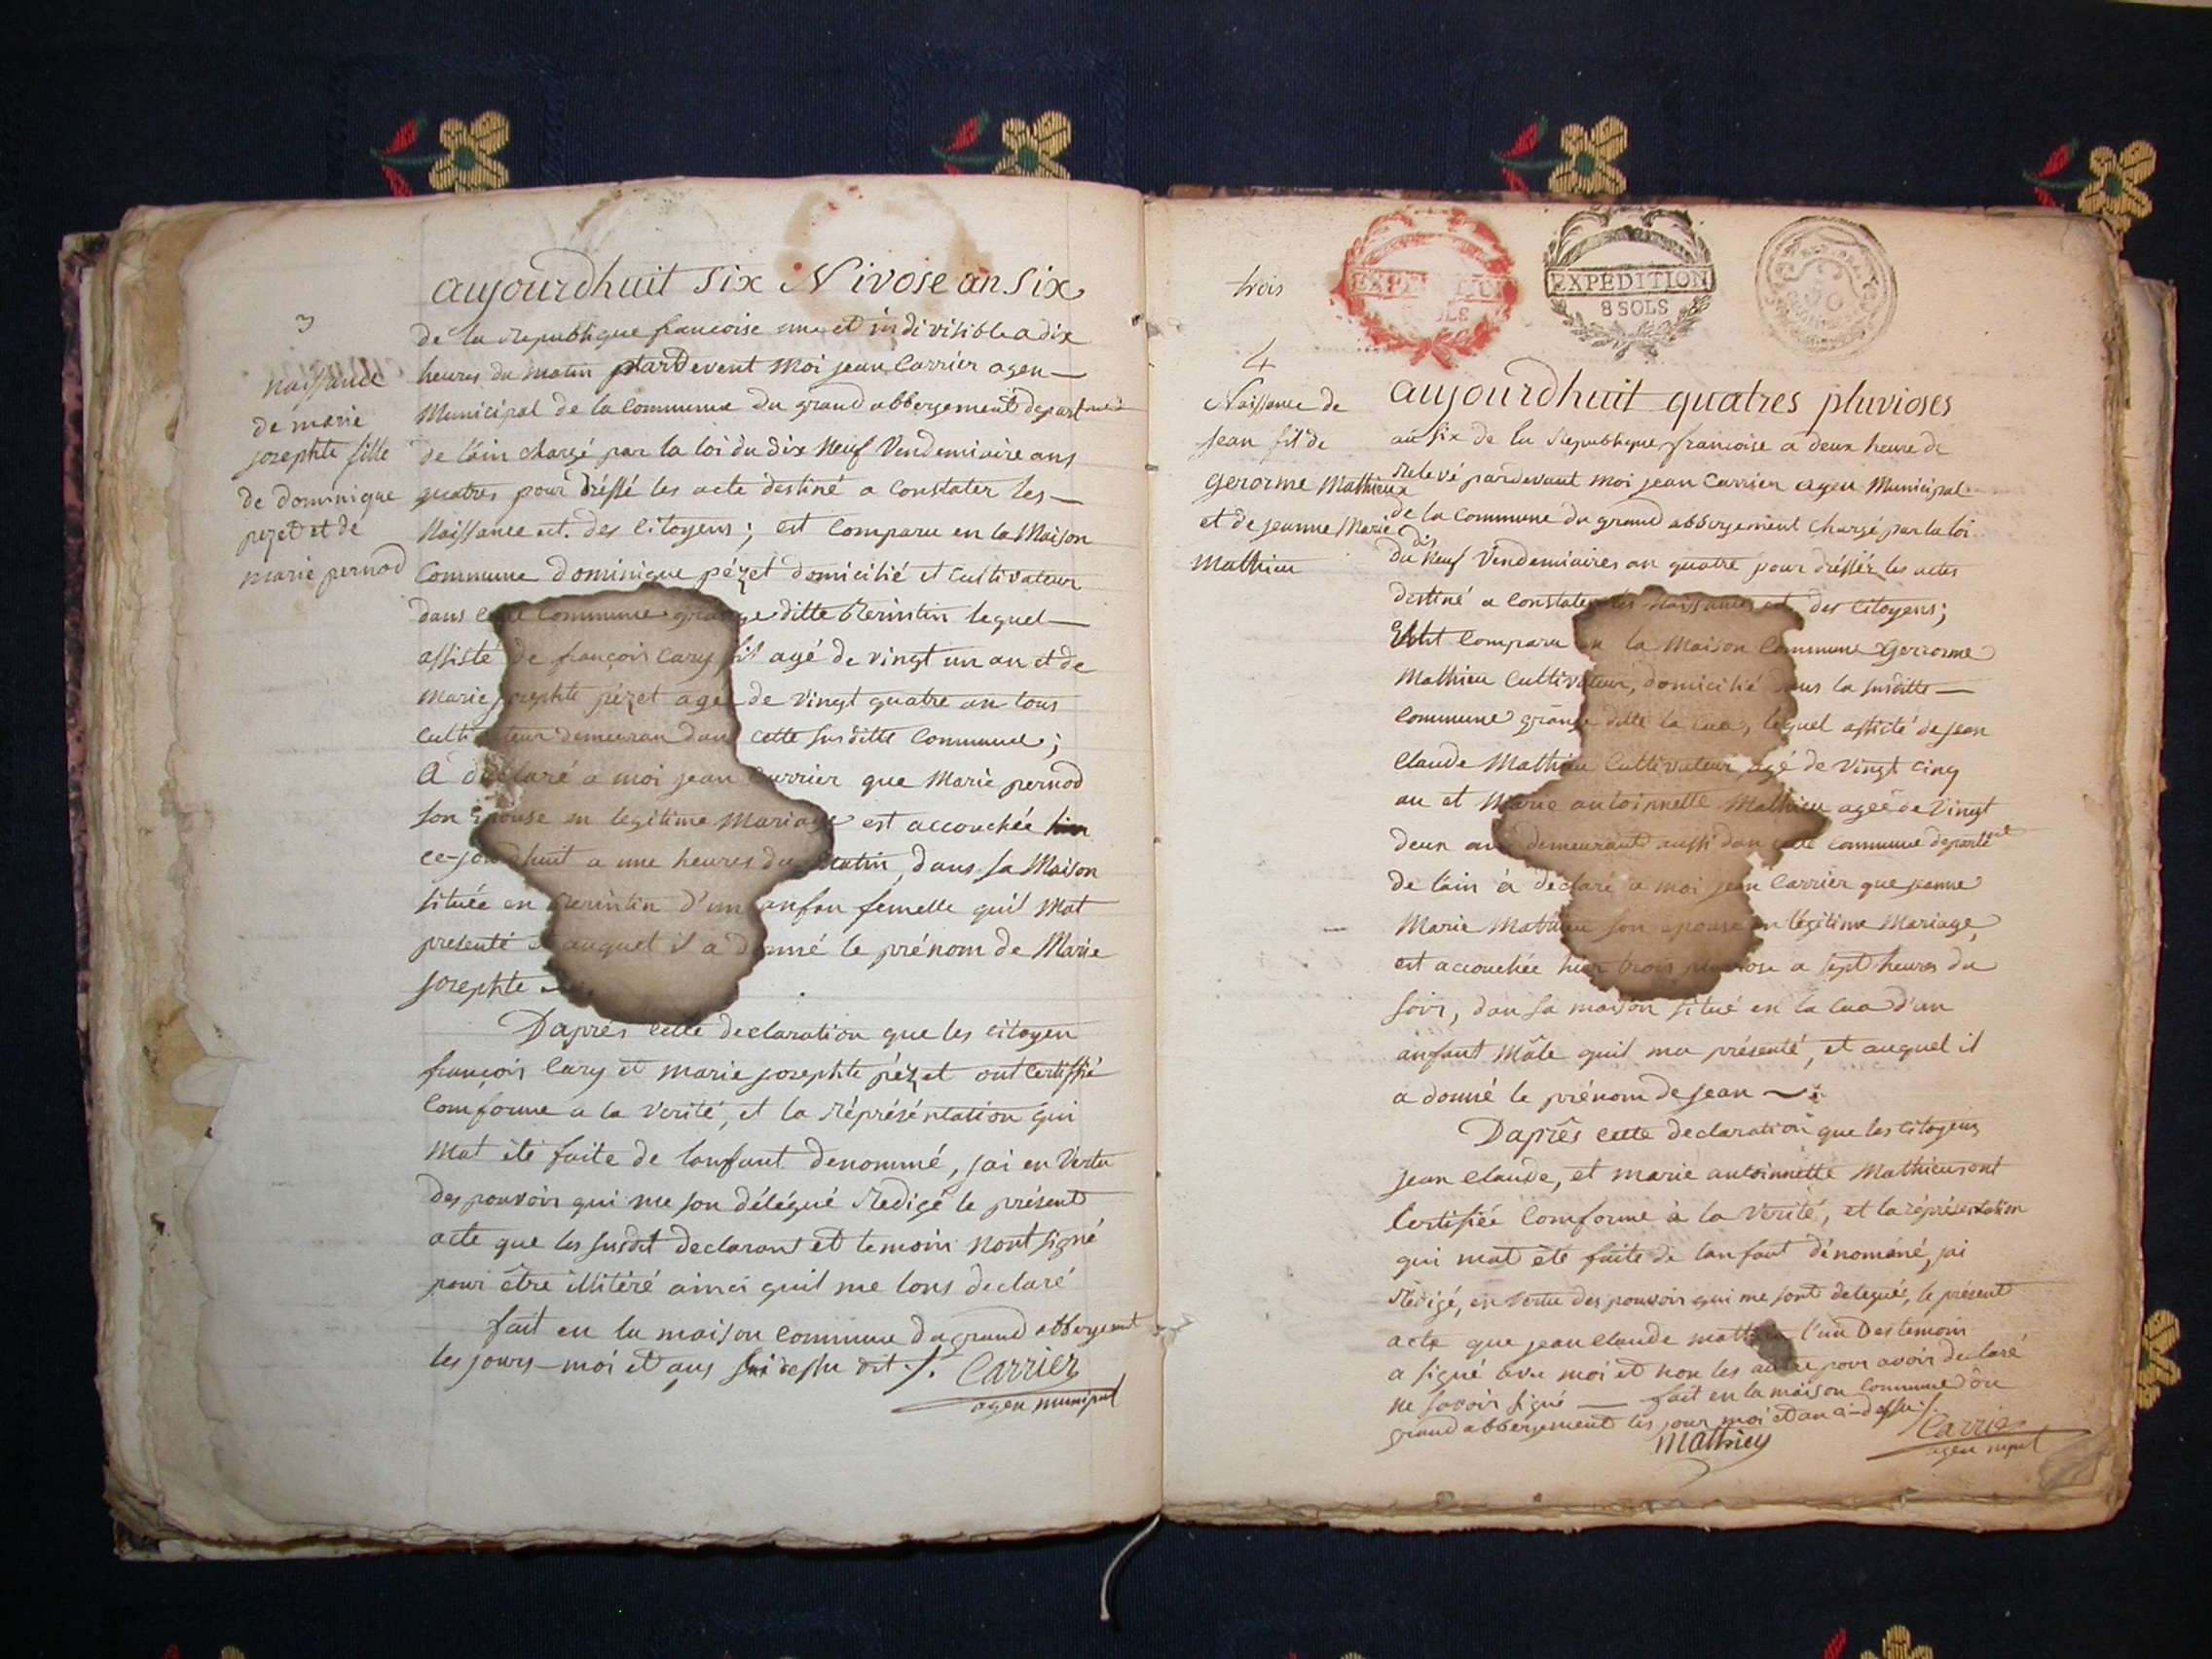 3
naissance
de marie
josephte fille
de dominique
pezet et de
marie pernod
aujourdhuit six Nivose an six
de la Republique francoise une et indivisible a dix
heures du matin pardevent moi jean Carrier agen
Municipal de la Commune du grand abbergement departmend
de lain chargé par la loi du dix neuf Vendemiaire ans
quatres pour dréssé les acte destiné a Constater les
Naissance ect. des Citoyens; est Comparu en la Maison
Commune dominique pézet domicilié et Cultivateur
dans cette Commune grange ditte lequel
assisté de françois Cary agé de vingt un an et de
marie josephte pézet agee de vingt quatre an tous
Cultivateur demeuran dans cette susditte Commune;
A declaré a moi jean Carrier que Marie pernod
son Epouse en legitime Mariage est accouchée
ce-jourdhuit a une heures du Matin, dans sa Maison
située en d'un anfan femelle quil Mat
presenté et auquel il a donné le prénom de Marie
Josephte
Daprés cette declaration que les citoyen
françois Cary et marie josephte pézet ont Certiffié
Comforme a la verité, et la répréséntation qui
Mat été faite de lanfant denommé, jai en Vertu
des pouvoir qui me son délégué Redigé le présent
acte que les susdit declarant et temoin Nont signé
pour être illitéré ainci quil me lons declaré
fait en la maison Commune du grand abbergement
les jours moi et ans dessu dit ./. Carrier
agen municipal
trois
EXPEDITION
EXPEDITION
8 SOLS
4
Naissance de
jean fil de
gerorme Mathieux
et de jeanne Marie
Mathieu
aujourdhuit quatres pluvioses
an six de la Republique francoise a deux heure de
Relevé pardevant moi jean Carrier agen Municipal
de la Commune du grand abbergement Chargé par la loi
dis
du neuf Vendemiaires an quatre pour dréssér les actes
destiné a Constater les Naissances ect. des Citoyens;
Est Comparu en la Maison Commune Gerorme
Mathieu Cultivateur, domicilié dans la susditte
Commune grange ditte la Cua, lequel assisté de jean
Claude Mathieu Cultivateur agé de vingt cinq
an et Marie antoinnette Mathieu ageé de vingt
deux ans demeurant aussi dans cette Commune departe
de lain à declaré a moi jean Carrier que jeanne
Marie Mathieu son epouse en légitime Mariage,
est accouchée hier trois pluviose a sept heures du
soir, dan sa maison situé en la Cua d'un
anfant Mâle quil ma présenté, et auquel il
a donné le prénom de jean
Daprês cette declaration que les Citoyens
jean Claude, et marie antoinnette Mathieu ont
Certifiée Comforme à la Verité, et la réprésentation
qui mat été faite de lanfant dénoméné, jai
Rédigé, en Vertu des pouvoir qui me sont delegués, le présent
acte que jean Claude mathieu l'un Des temoin
a signé avec moi et non les autre pour avoir declaré
ne savoir signé fait en la maison Commune du
grand abbergement les jour, moi et an ci-dessu ./.
Mathieu
Carrier
agen mpal